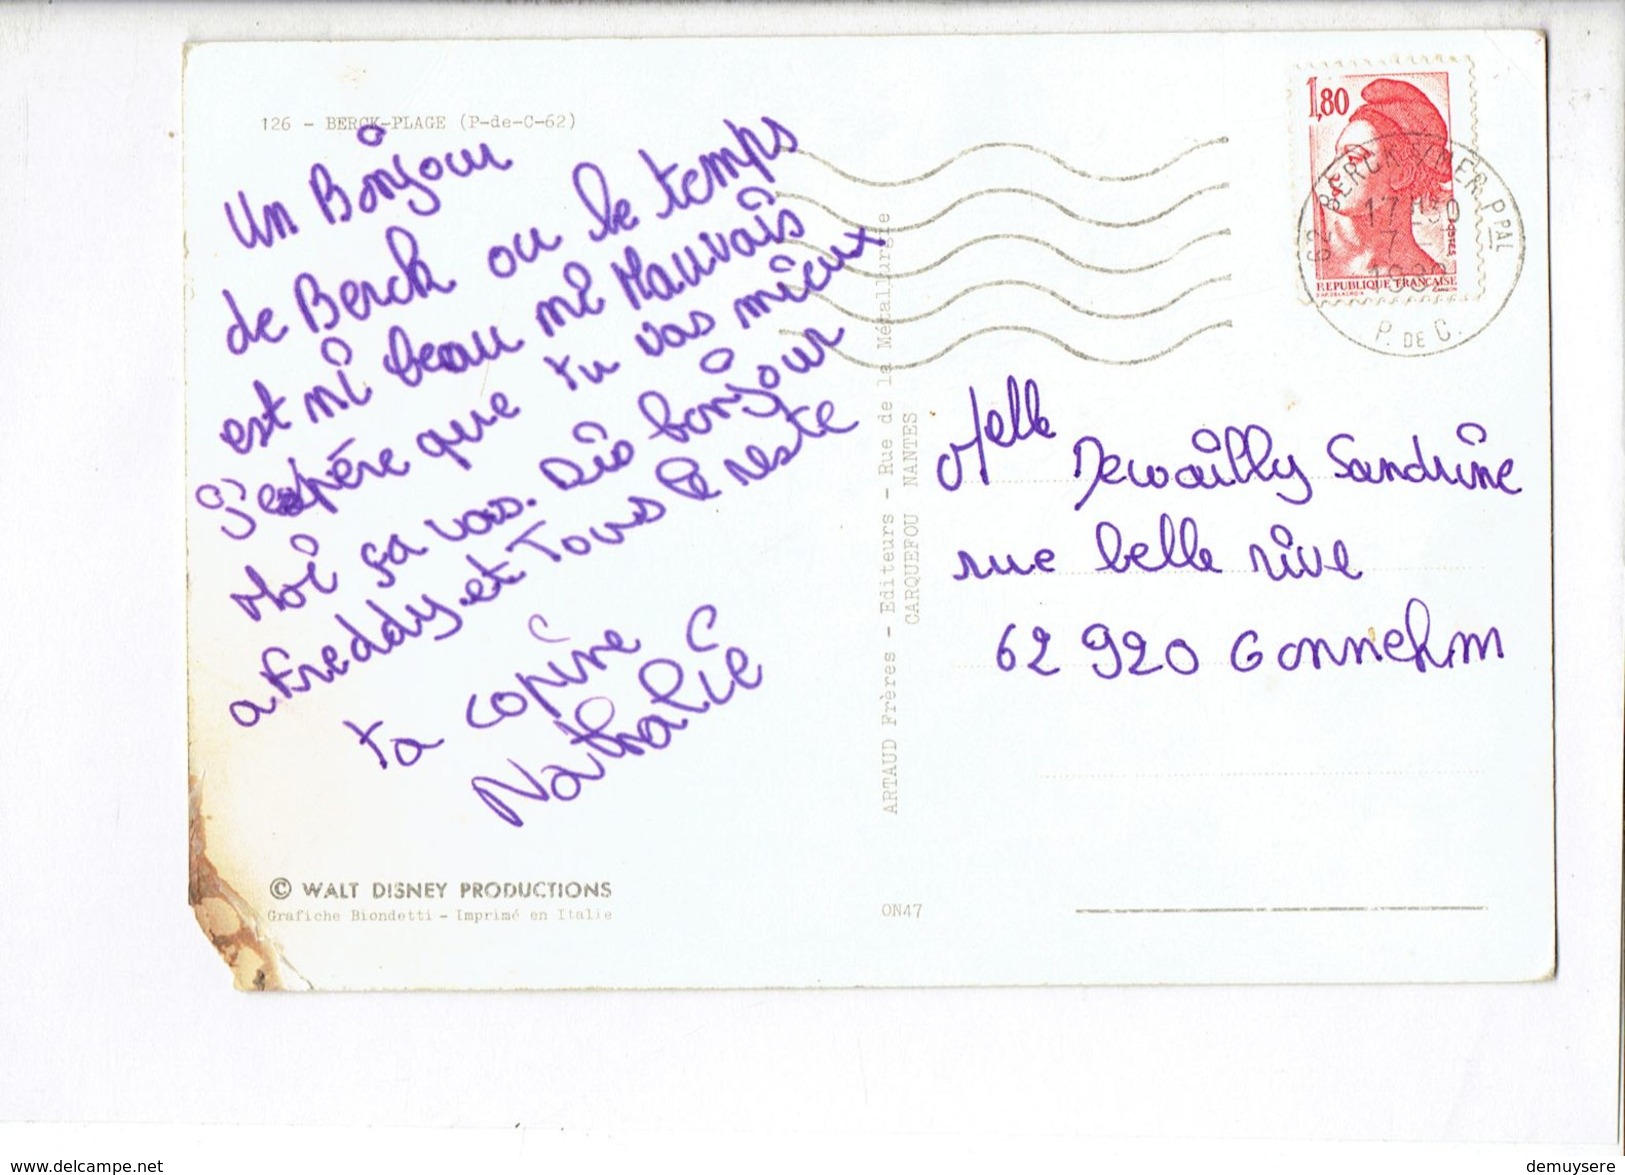 126 - BERCK-PLAGE (P-de-C-62)
Un Bonjour
de Berck ou le temps
est ni beau ni Mauvais
J'espère que tu vas mieux
Moi sa vas. Dis bonjour
a Freddy et Tous le reste
ta copine
Nathalie
© WALT DISNEY PRODUCTIONS
Grafiche Biondetti - Imprimé en Italie
ARTAUD Frères - Editeurs - Rue de la Métallurgie
CARQUEFOU NANTES
ON47
1,80
REPUBLIQUE FRANÇAISE
62 BERCK S/MER PPAL
17 H30
7
P. DE C.
Melle Dewailly Sandrine
rue belle rive
62 920 Gonnehm
www.delcampe.net
demuysere